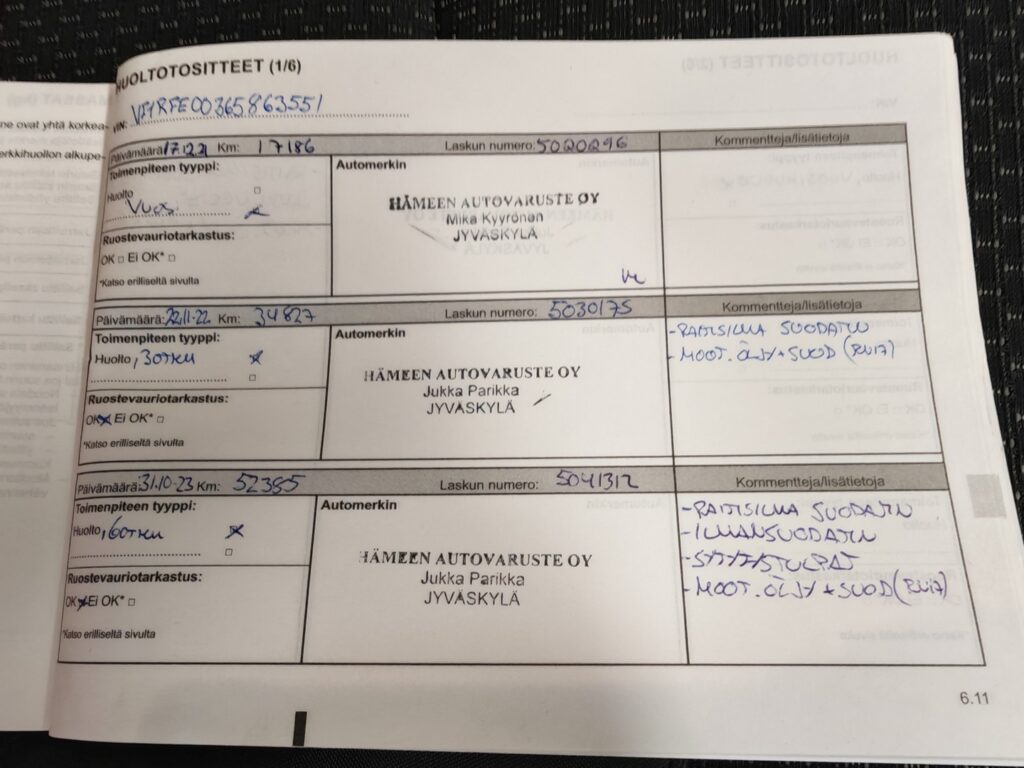 HUOLTOTOSITTEET (1/6)
VIN: VF1RFE00365863551
ne ovat yhtä korkea-
erkkihuollon alkupe-
Päivämäärä: 17.12.21 Km: 17186 Laskun numero: 5020296 Kommentteja/lisätietoja
Toimenpiteen tyyppi: Automerkin
Huolto
Vuosi
HÄMEEN AUTOVARUSTE OY
Mika Kyyrönen
JYVÄSKYLÄ
Ruostevauriotarkastus:
OK □ Ei OK* □
*Katso erilliseltä sivulta
Päivämäärä: 22.11.22 Km: 34827 Laskun numero: 5030175 Kommentteja/lisätietoja
Toimenpiteen tyyppi: Automerkin
Huolto, 30TKM
-RAITISILMA SUODATIN
-MOOT.ÖLJY+SUOD (RN17)
HÄMEEN AUTOVARUSTE OY
Jukka Parikka
JYVÄSKYLÄ
Ruostevauriotarkastus:
OK x Ei OK* □
*Katso erilliseltä sivulta
Päivämäärä: 31.10.23 Km: 52385 Laskun numero: 5041312 Kommentteja/lisätietoja
Toimenpiteen tyyppi: Automerkin
Huolto, 60TKM
-RAITISILMA SUODATIN
-ILMANSUODATIN
-SYTYTYSTULPAT
-MOOT.ÖLJY+SUOD (RN17)
HÄMEEN AUTOVARUSTE OY
Jukka Parikka
JYVÄSKYLÄ
Ruostevauriotarkastus:
OK x Ei OK* □
*Katso erilliseltä sivulta
6.11